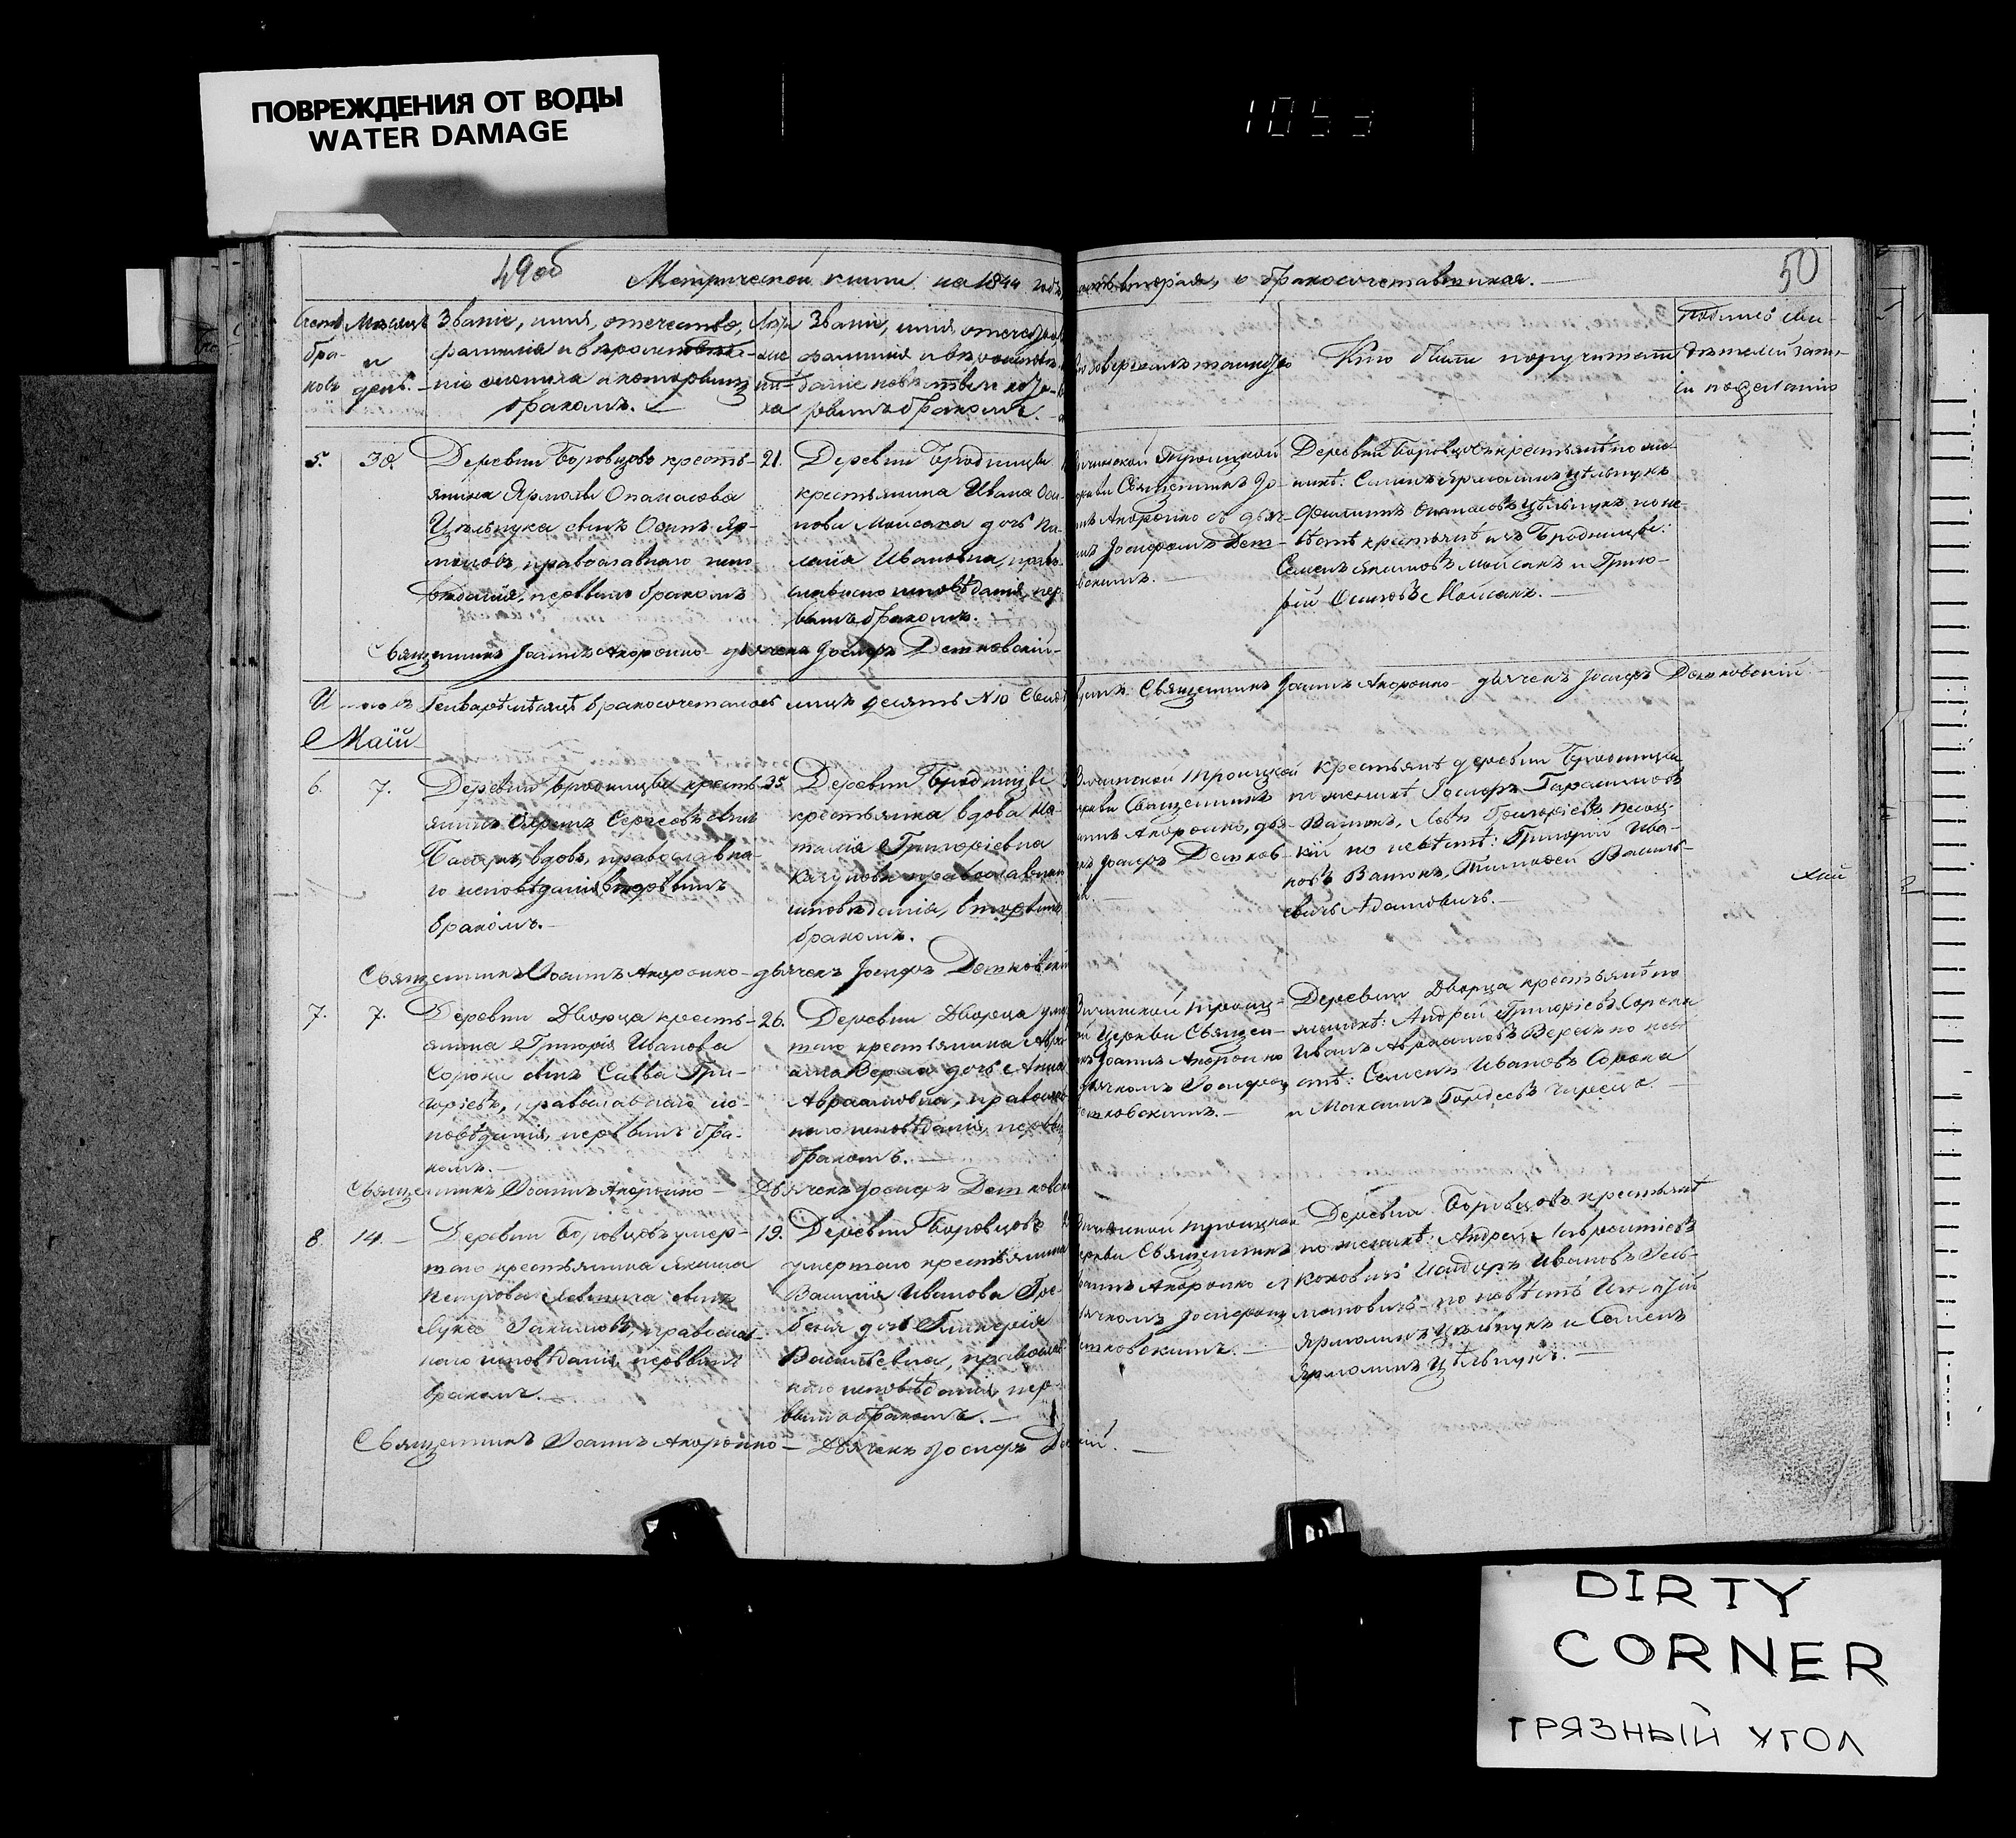 ПОВРЕЖДЕНИЯ ОТ ВОДЫ
WATER DAMAGE
1053
49об
Метрической книги на 1844 годъ часть вторая, о бракосочетавшихся.
50
Званіе, имя, отечество,
фамилія и вѣроисповѣда-
ніе жениха и которымъ
бракомъ.
Лѣта
же
ни-
ха
Мѣсяцъ
и
день.
бра-
ковъ
Званіе, имя отечество
фамилія и вѣроисповѣ-
даніе невѣсты и кото-
рымъ бракомъ.
Кто совершалъ таинство
Кто были поручители
Подпись сви-
дѣтелей запи-
си по желанію
5.
30.
Деревни Боровцовъ кресть-
янина Ярмолы Опанасова
Цѣльпука сынъ Осипъ Яр-
моловъ, православнаго испо-
вѣданія, первымъ бракомъ
21.
Деревни Бродницы
крестьянина Ивана Оси-
пова Мойсака дочь Па-
лагія Ивановна, право-
славнаго исповѣданія, пер-
вымъ бракомъ.
Троицкой
церкви Священникъ Іо-
аннъ Акоронко съ дьяч-
комъ Іосифомъ Дет-
ковскимъ.
Деревни Боровцовъ крестьяне по же-
нихѣ: Семенъ Ярмолинъ Цѣльпукъ
Филиппъ Опанасовъ Цѣльпукъ по не-
вѣстѣ крестьяне изъ Бродницы:
Семенъ Якимовъ Мойсакъ и Григо-
рій Осиповъ Мойсакъ.
Священникъ Іоаннъ Акоронко дьячекъ Іосифъ Детковскій
Итого въ Генварѣ мѣсяцѣ бракосочеталось лицъ десять №10 Священникъ Іоаннъ Акоронко дьячекъ Іосифъ Детковскій
Маій
6.
7.
Деревни Бродницы кресть-
янинъ Охремъ Сергеевъ сынъ
вдовъ, православна-
го исповѣданія, вторымъ
бракомъ.
35
Деревни Бродницы
крестьянка вдова На-
талія Григоріевна
православнаго
исповѣданія, вторымъ
бракомъ.
Троицкой
церкви Священникъ
Іоаннъ Акоронко, дья-
чекъ Іосифъ Детков-
скій.
Крестьяне деревни Бродницы
по женихѣ Іосифъ Гарасимовъ
Ватокъ, Левъ Григоріевъ
по невѣстѣ: Григорій Ива-
новъ Ватокъ, Тимофей Василь-
евичъ Адамовичъ.
Священникъ Іоаннъ Акоронко дьячекъ Іосифъ Детковскій
7.
7.
Деревни Дворца кресть-
янина Григорія Иванова
Сороки сынъ Савва Гри-
горіевъ, православнаго ис-
повѣданія, первымъ бра-
комъ.
26.
Деревни Дворца умер-
таго крестьянина Авра-
ама дочь Анна
Авраамовна, православ-
наго исповѣданія, первымъ
бракомъ.
Троиц-
кой Церкви Священ-
никъ Іоаннъ Акоронко
дьячкомъ Іосифомъ
Детковскимъ.
Деревни Дворца крестьяне по
женихѣ: Андрей Григоріевъ Сорока
Иванъ Авраамовъ по невѣ-
стѣ: Семенъ Ивановъ Сорока
и Максимъ Гордеевъ
Священникъ Іоаннъ Акоронко Дьячекъ Іосифъ Детковскій
8.
14.
Деревни Боровцовъ умер-
таго крестьянина Якима
Петрова сынъ
Лука Іакимовъ, православ-
наго исповѣданія, первымъ
бракомъ.
19.
Деревни Боровцовъ
умертаго крестьянина
Василія Иванова Гре-
беня дочь Гликерія
Васильевна, православ-
наго исповѣданія, пер-
вымъ бракомъ.
Троицкой
церкви Священникъ
Іоаннъ Акоронко съ
дьячкомъ Іосифомъ
Детковскимъ.
Деревни Боровцовъ крестьяне
по женихѣ: Андрей
Ивановъ
по невѣстѣ Игнатій
Ярмолинъ Цѣльпукъ и Семенъ
Ярмолинъ Цѣльпукъ.
Священникъ Іоаннъ Акоронко Дьячекъ Іосифъ
DIRTY
CORNER
ГРЯЗНЫЙ УГОЛ